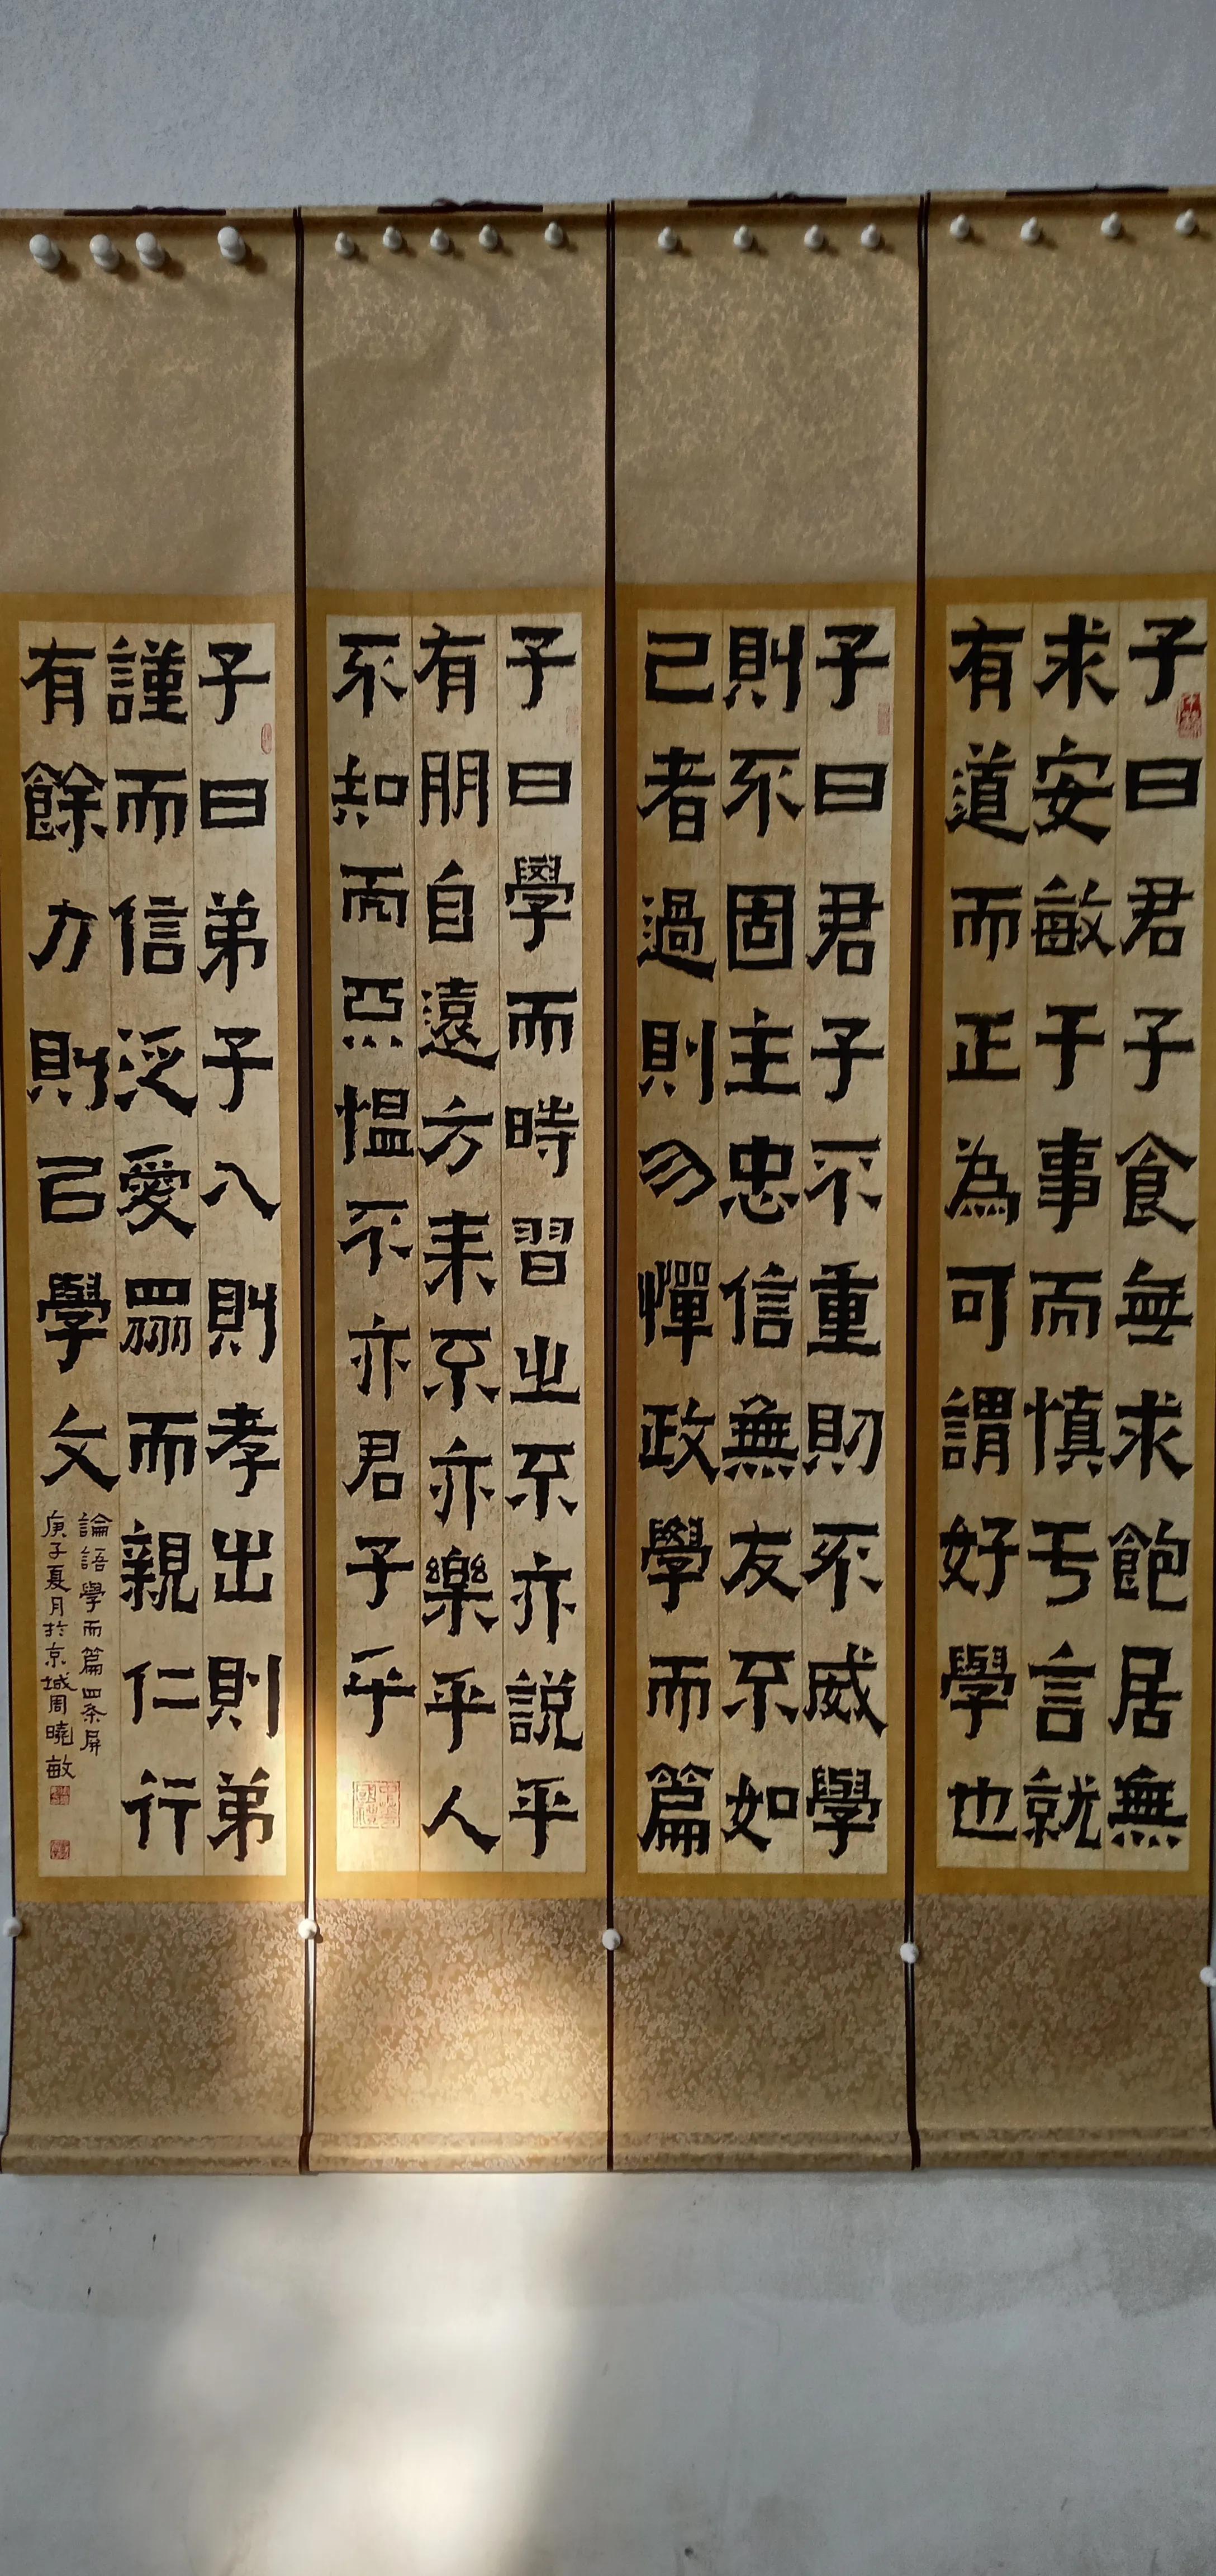 子曰君子食無求飽居無
求安敏于事而慎亏言就
有道而正為可謂好學也
子曰君子不重則不威學
則不固主忠信無友不如
己者過則勿憚政學而篇
子曰學而時習之不亦説乎
有朋自遠方來不亦樂乎人
不知而惡愠不亦君子乎
子曰弟子入則孝出則弟
謹而信泛愛眾而親仁行
有餘力則㠯學文
論語學而篇四条屏
庚子夏月於京城周曉敏